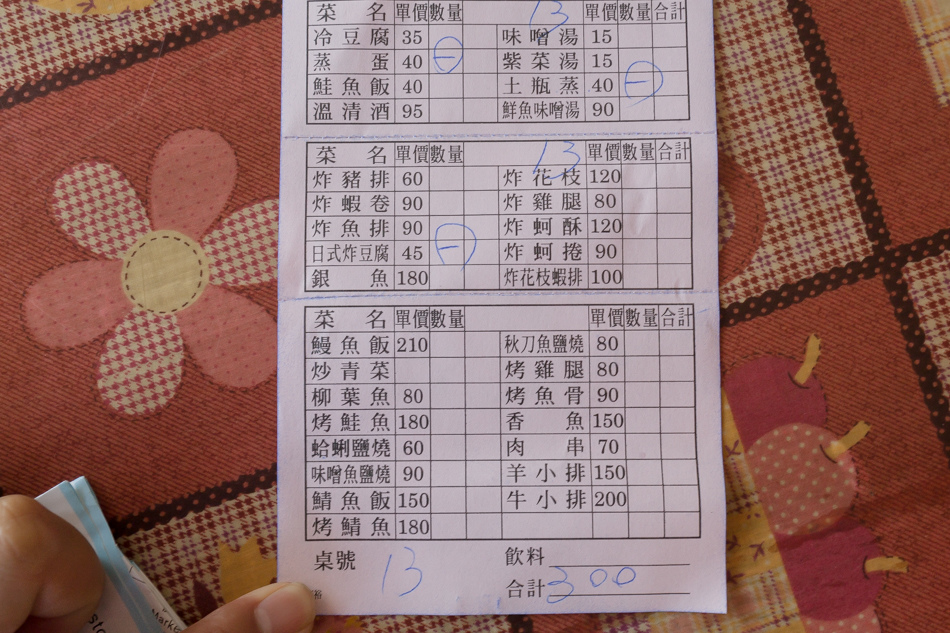 菜名 單價 數量 13 單價 數量 合計
冷豆腐 35 味噌湯 15
蒸蛋 40 一 紫菜湯 15
鮭魚飯 40 土瓶蒸 40 一
溫清酒 95 鮮魚味噌湯 90
菜名 單價 數量 13 單價 數量 合計
炸豬排 60 炸花枝 120
炸蝦卷 90 炸雞腿 80
炸魚排 90 炸蚵酥 120
日式炸豆腐 45 一 炸蚵捲 90
銀魚 180 炸花枝蝦排 100
菜名 單價 數量 單價 數量 合計
鰻魚飯 210 秋刀魚鹽燒 80
炒青菜 烤雞腿 80
柳葉魚 80 烤魚骨 90
烤鮭魚 180 香魚 150
蛤蜊鹽燒 60 肉串 70
味噌魚鹽燒 90 羊小排 150
鯖魚飯 150 牛小排 200
烤鯖魚 180
桌號 13 飲料
合計 300